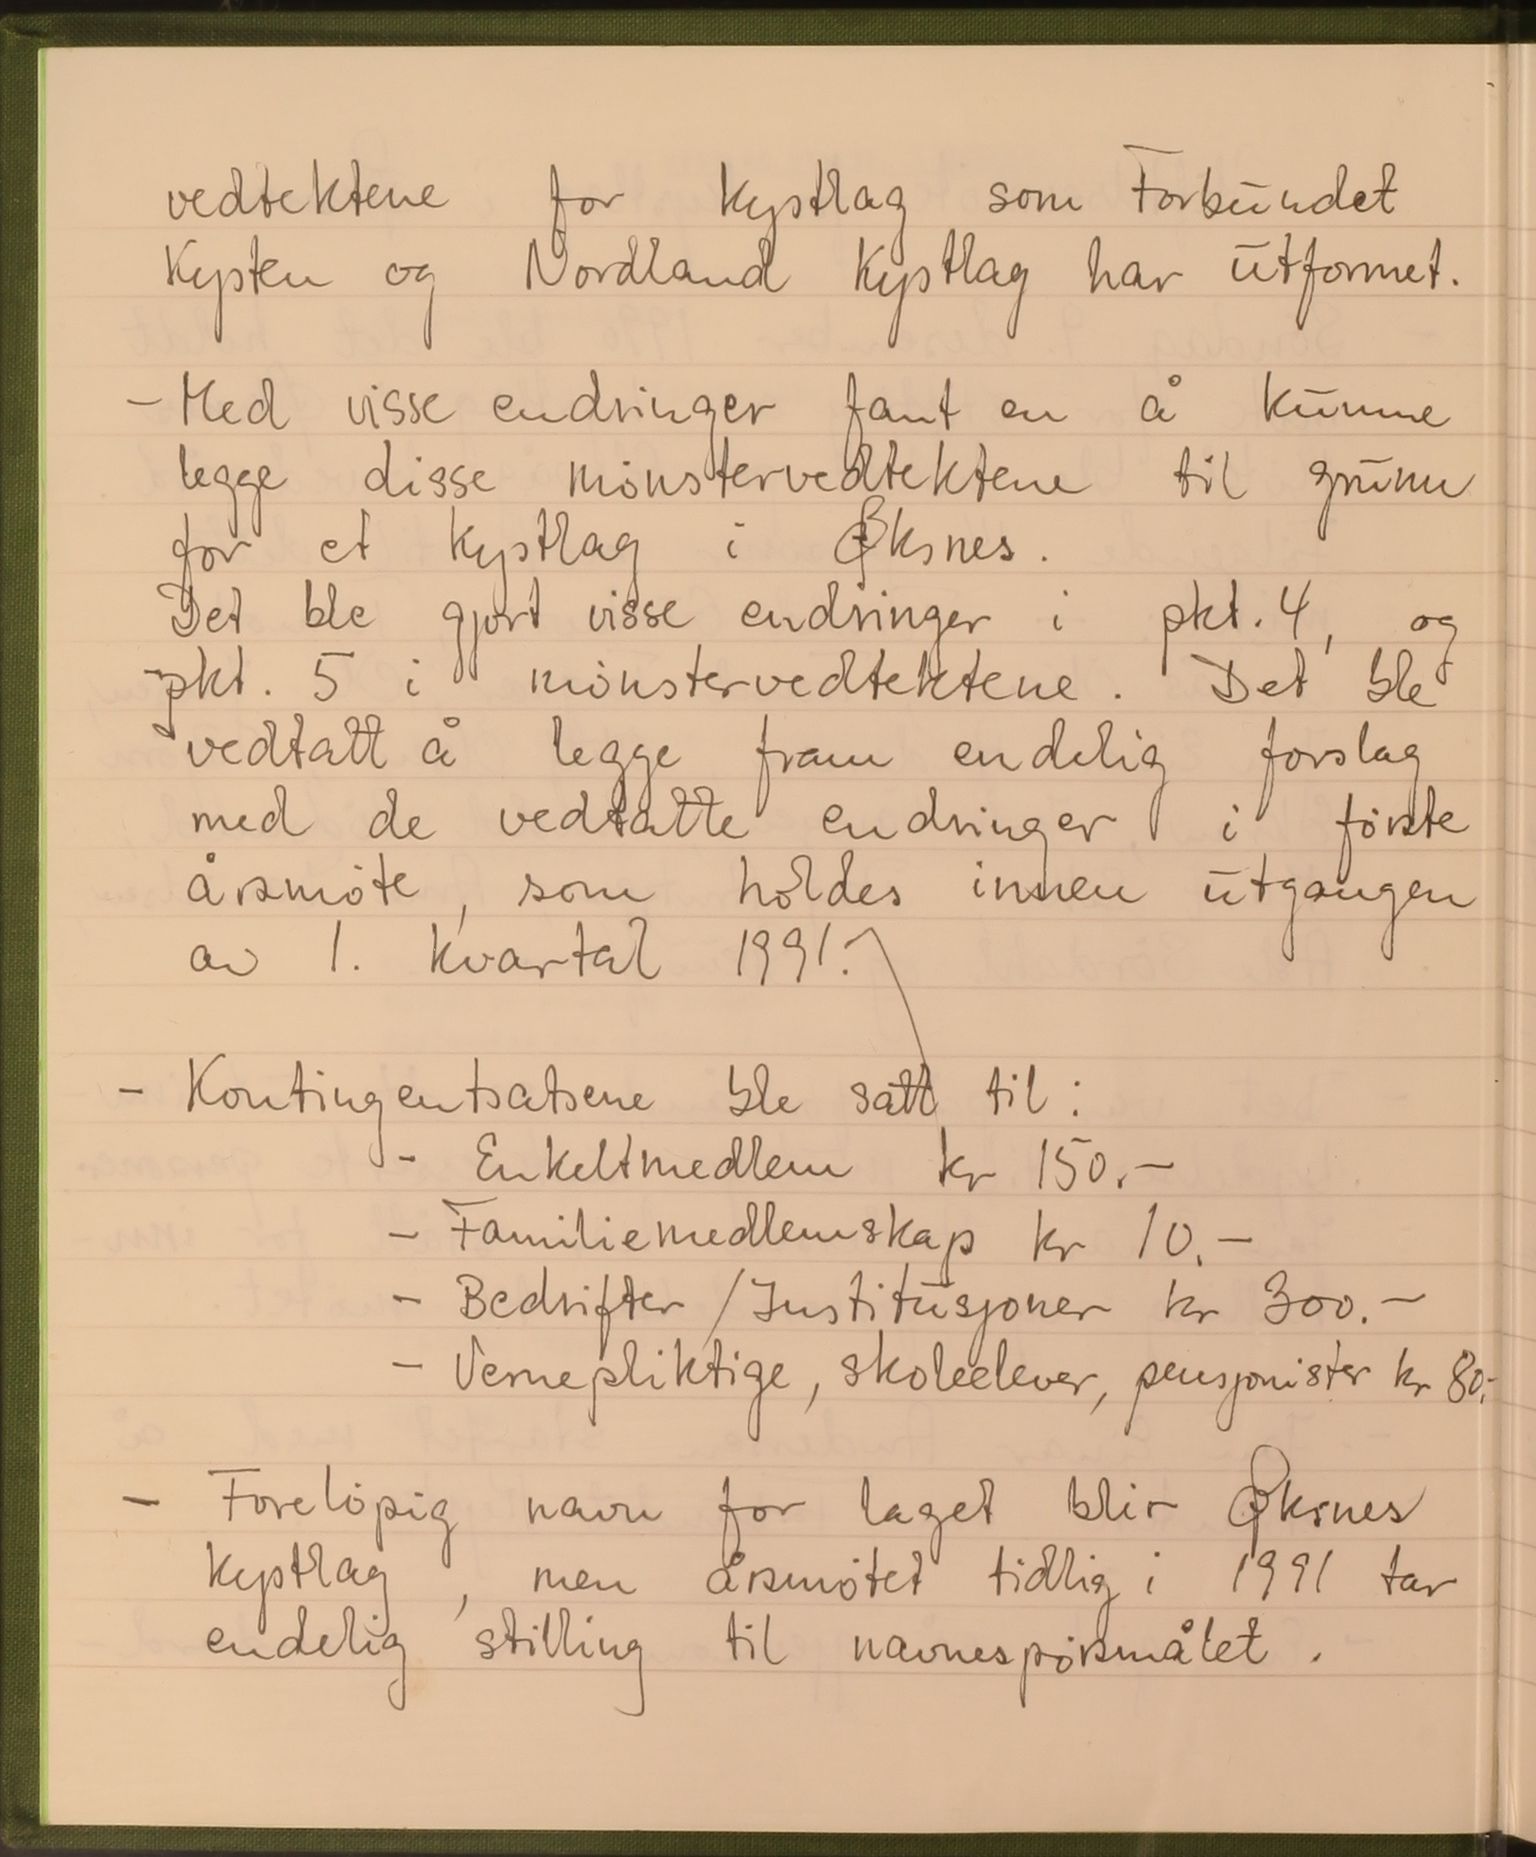 vedtektene for kystlag som Forbundet
Kysten og Nordland Kystlag har utformet.
- Med visse endringer fant en å kunne
legge disse mønstervedtektene til grunn
for et kystlag i Øksnes.
Det ble gjort visse endringer i pkt. 4, og
pkt. 5 i mønstervedtektene. Det ble
vedtatt å legge fram endelig forslag
med de vedtatte endringer, i første
årsmøte, som holdes innen utgangen
av 1. kvartal 1991.
- Kontingentsatsene ble satt til:
- Enkeltmedlem kr 150.-
- Familiemedlemskap kr 10.-
- Bedrifter / Institusjoner kr 300.-
- Vernepliktige, skoleelever, pensjonister kr 80.-
- Foreløpig navn for laget blir Øksnes
kystlag, men årsmøtet tidlig i 1991 tar
endelig stilling til navnespørsmålet.